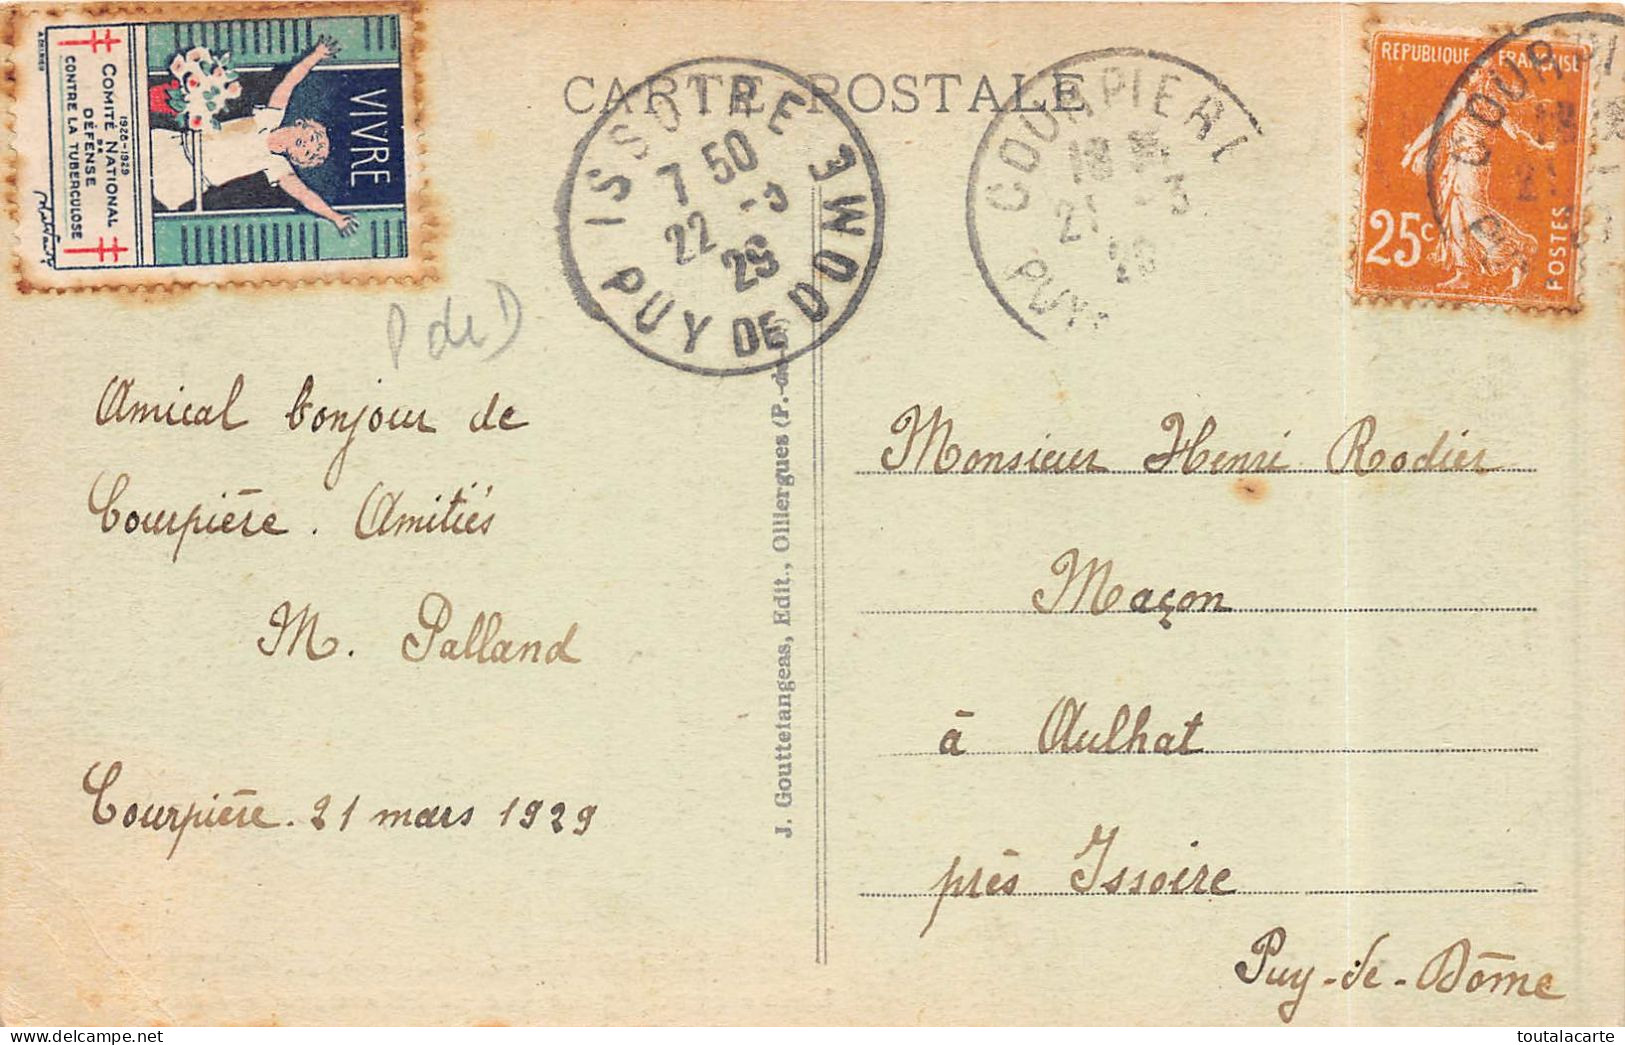 CARTE POSTALE
VIVRE
1928-1929
COMITÉ NATIONAL
DE
DÉFENSE
CONTRE LA TUBERCULOSE
ISSOIRE
7 50
22 -3
29
PUY DE DOME
COURPIERE
21 3
PUY
REPUBLIQUE FRANÇAISE
25c
POSTES
P de D
Amical bonjour de
Courpière. Amitiés
M. Palland
Courpière. 21 mars 1929
J. Gouttefangeas, Edit., Olliergues (P.-de-D.)
Monsieur Henri Rodier
Maçon
à Aulhat
près Issoire
Puy-de-Dôme
toutalacarte